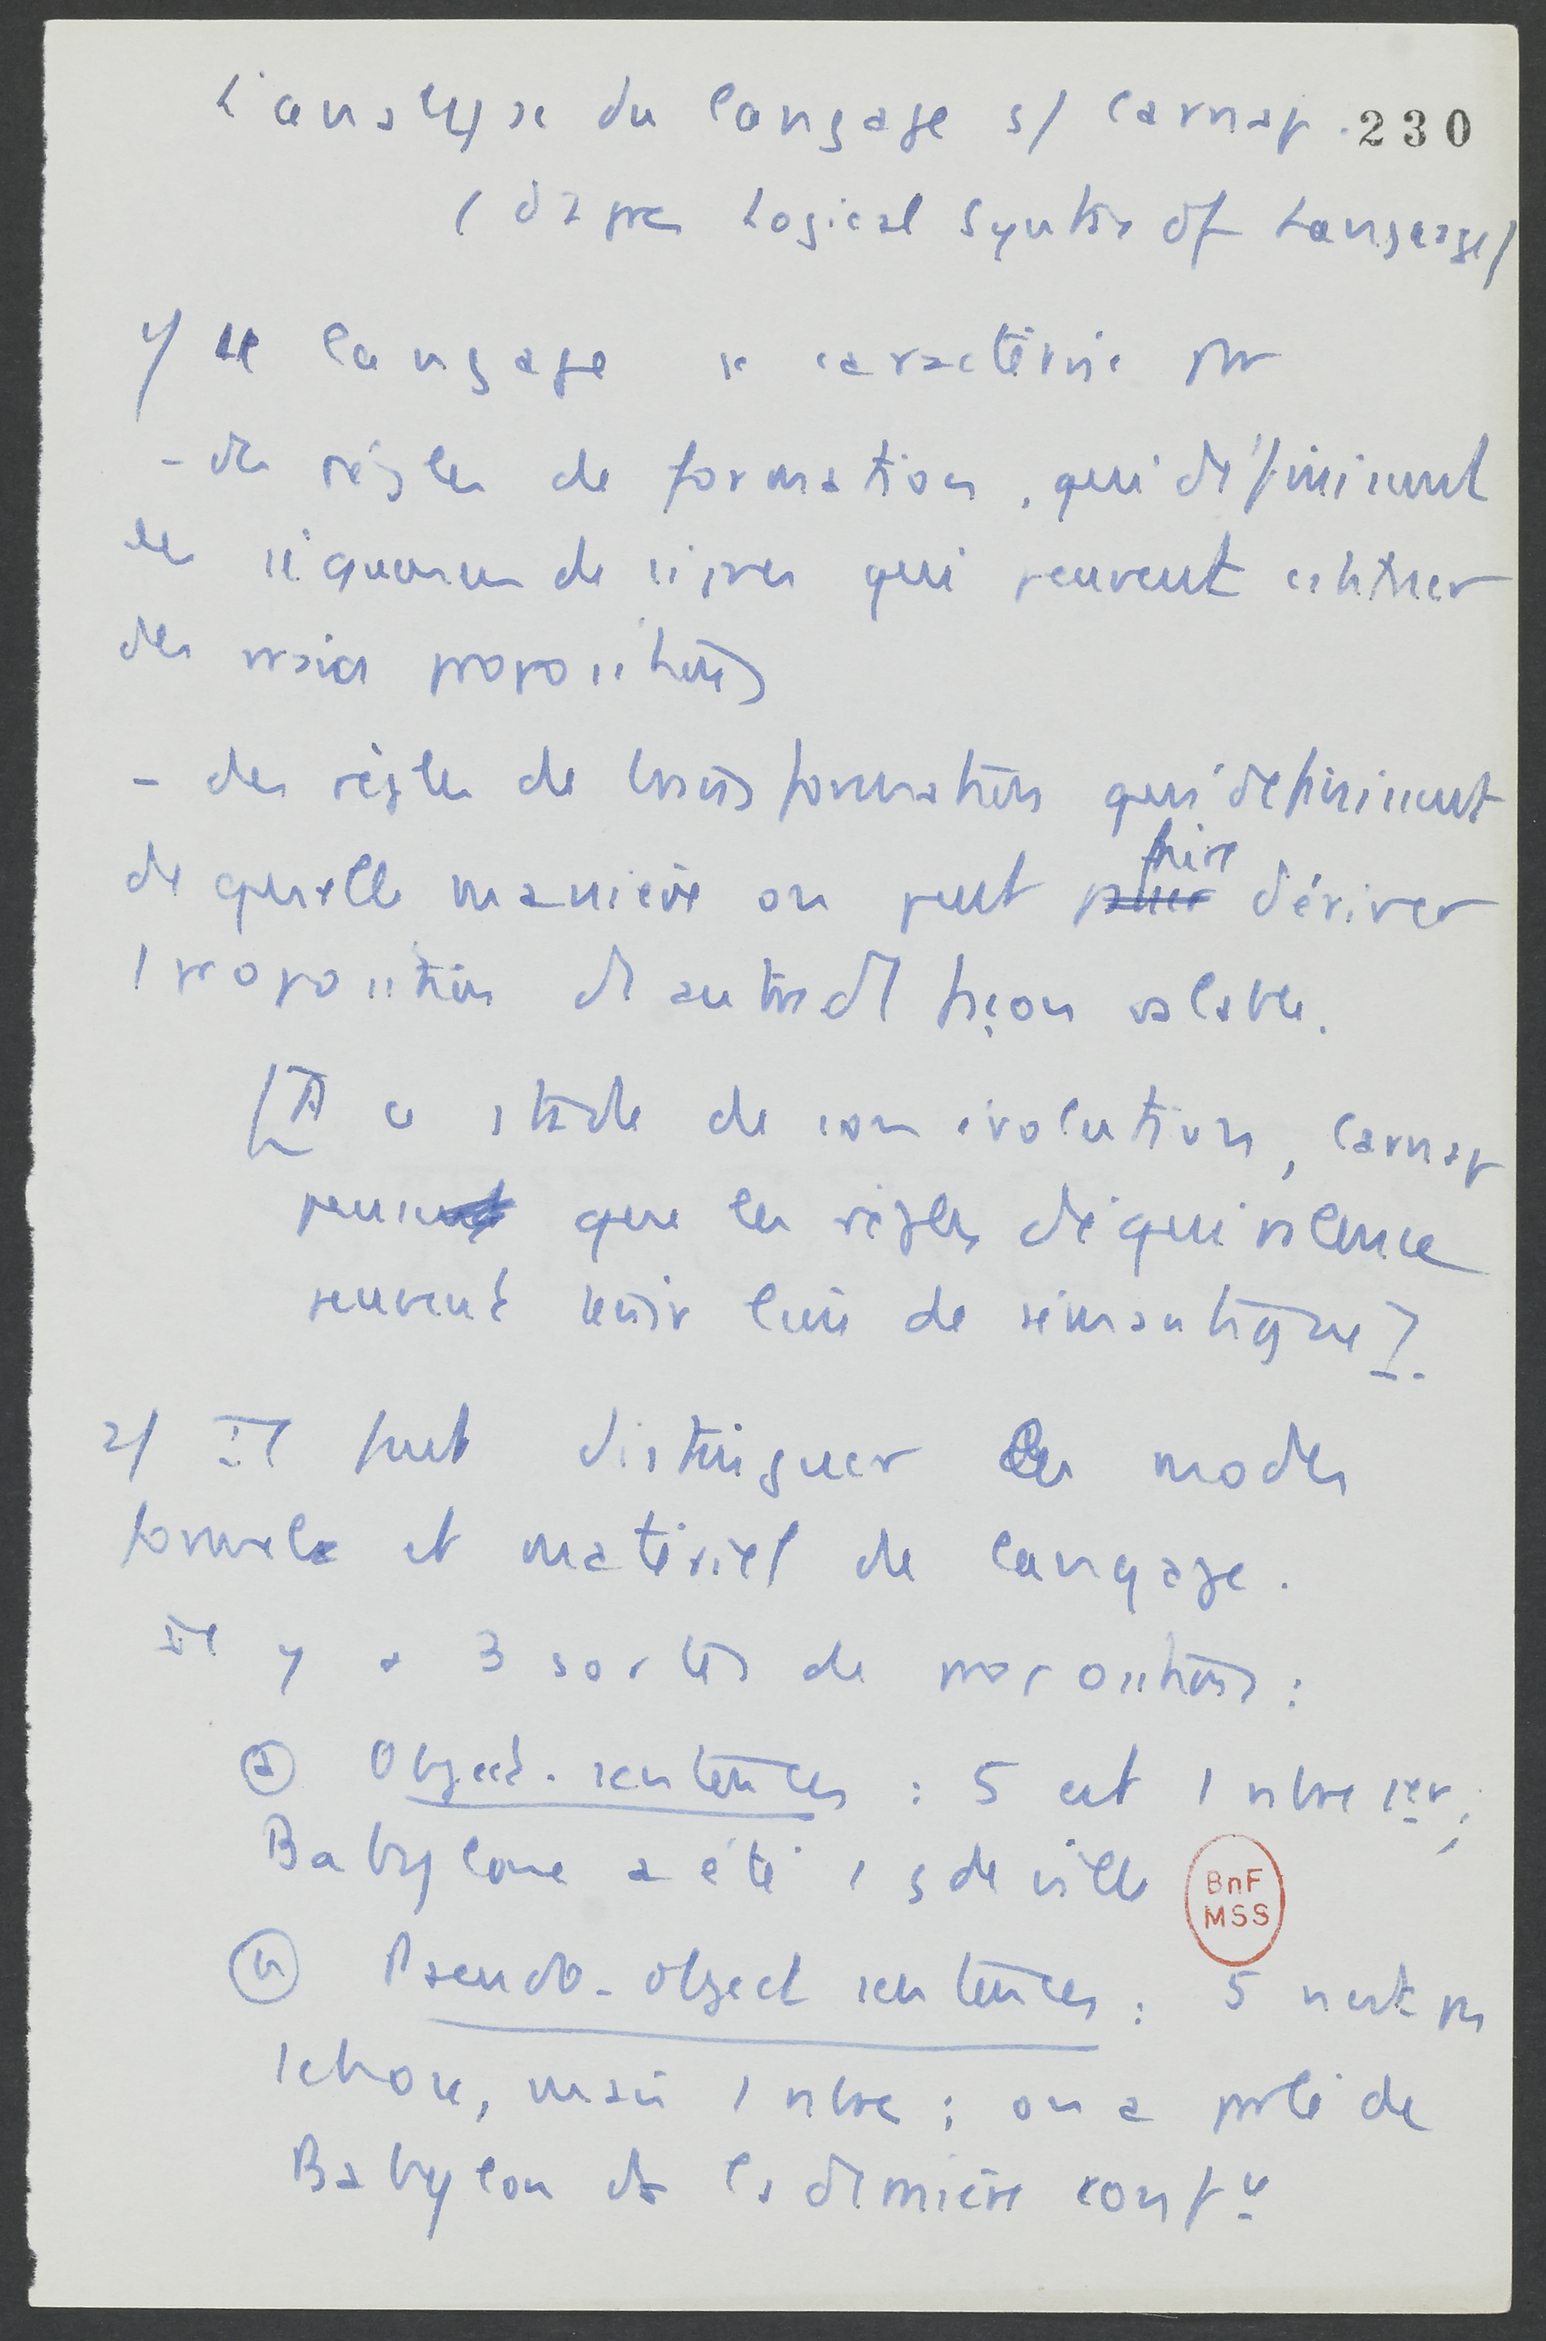 L'analyse du langage s/ Carnap. 230
(d'après Logical Syntax of Language)
1/ Le langage se caractérise par
- des règles de formation, qui définissent
les séquences de signes qui peuvent constituer
des vraies propositions
- des règles de transformation qui définissent
de quelle manière on peut faire dériver
1 proposition d'1 autre d'1 façon valable.
[A ce stade de son évolution, Carnap
pense que les règles d'équivalence
peuvent tenir lieu de sémantique].
2/ Il faut distinguer les modes
formel et matériel de langage.
Il y a 3 sortes de propositions :
(a) Object-sentences : 5 est 1 nbre 1er ;
Babylone a été 1 gde ville
BnF
MSS
(b) Pseudo-object sentences : 5 n'est pas
1 chose, mais 1 nbre ; on a parlé de
Babylon ds la dernière conf ce